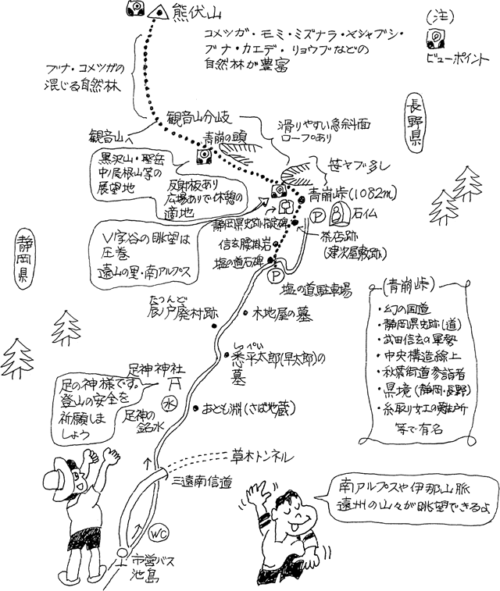 熊伏山
(注)
ビューポイント
コメツガ・モミ・ミズナラ・ヤシャブシ・
ブナ・カエデ・リョウブなどの
自然林が豊富
ブナ・コメツガの
混じる自然林
長野県
観音山分岐
観音山へ
青崩の頭
滑りやすい急斜面
ロープあり
笹ヤブ多し
黒沢山・聖岳
中ノ尾根山等の
展望地
反射板あり
広場ありで休憩の
適地
青崩峠(1082m)
P
石仏
静岡県史跡指定碑
茶店跡
信玄腰掛岩
塩の道石碑
V字谷の眺望は
圧巻
遠山の里・南アルプス
静岡県
P
塩の道駐車場
たつんど
辰ノ戸廃村跡
木地屋の墓
(青崩峠)
・幻の国道
・静岡県史跡(道)
・武田信玄の軍勢
・中央構造線上
・秋葉街道参詣者
・県境(静岡・長野)
・糸取り女工の難所
等で有名
足神神社
足の神様です。
登山の安全を
祈願しま
しょう
水
足神の
銘水
悉平太郎(早太郎)の
墓
おとも渕(さば地蔵)
草木トンネル
三遠南信道
WC
市営バス
池島
南アルプスや伊那山脈
遠州の山々が眺望できるよ